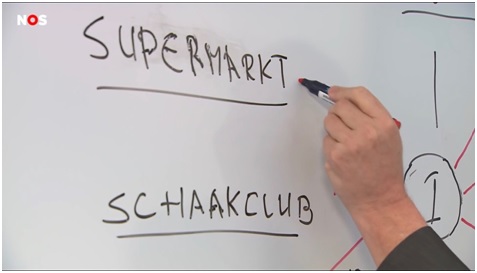 NOS
SUPERMARKT
SCHAAKCLUB
1